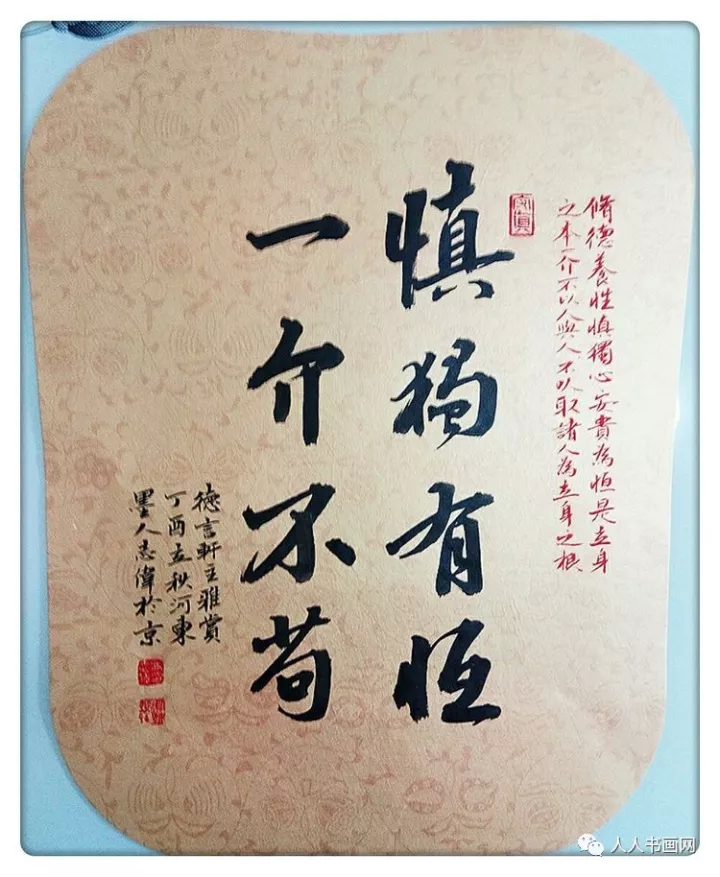 脩德養性慎獨心安貴為恒是立身
之本一介不以人與人不以取諸人為立身之根
慎獨有恒
一介不苟
德言軒主雅賞
丁酉立秋河東
墨人志偉於京
人人书画网